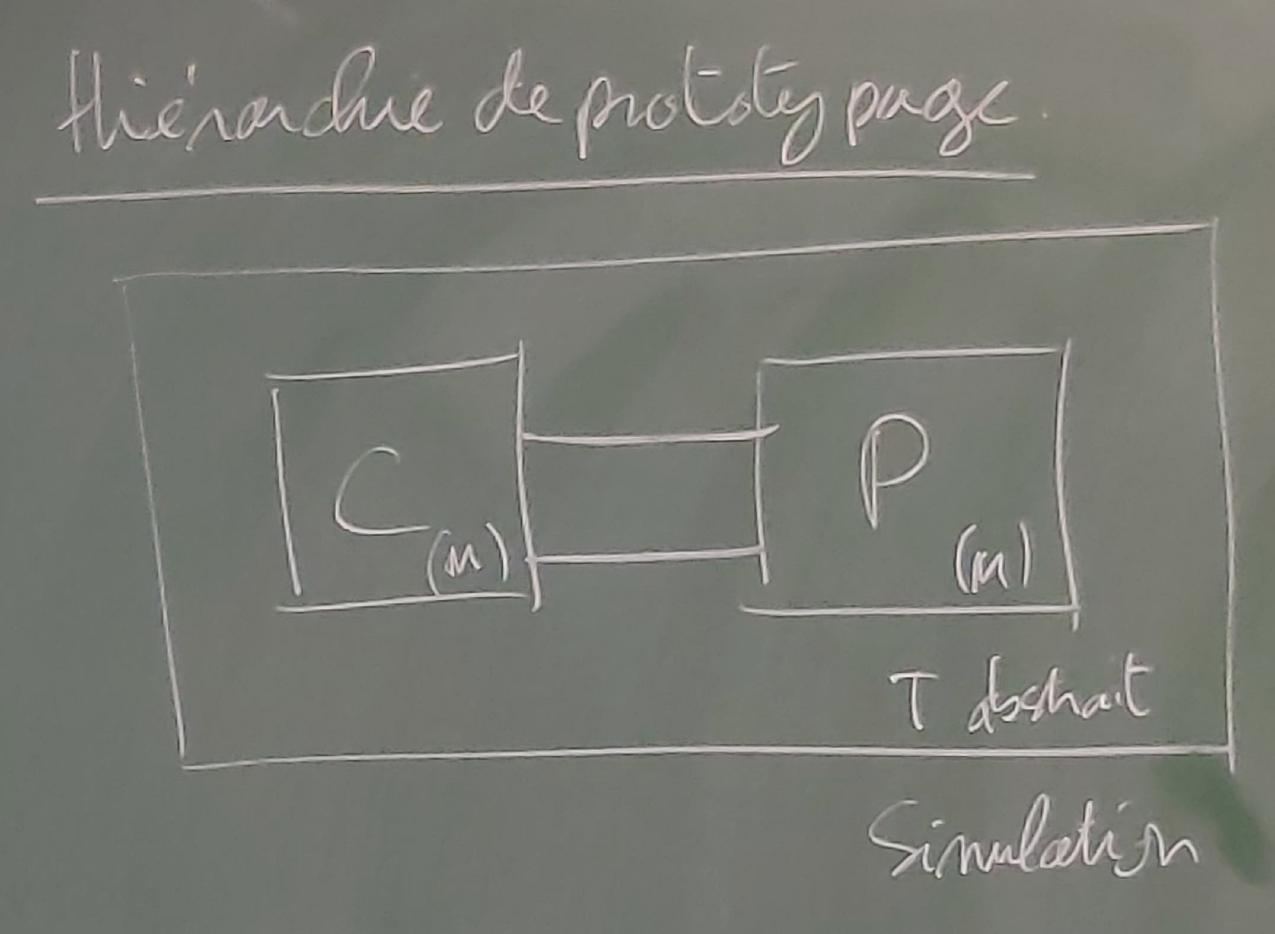 Hiérarchie de prototypage.
C
(m)
P
(m)
T abstrait
Simulation